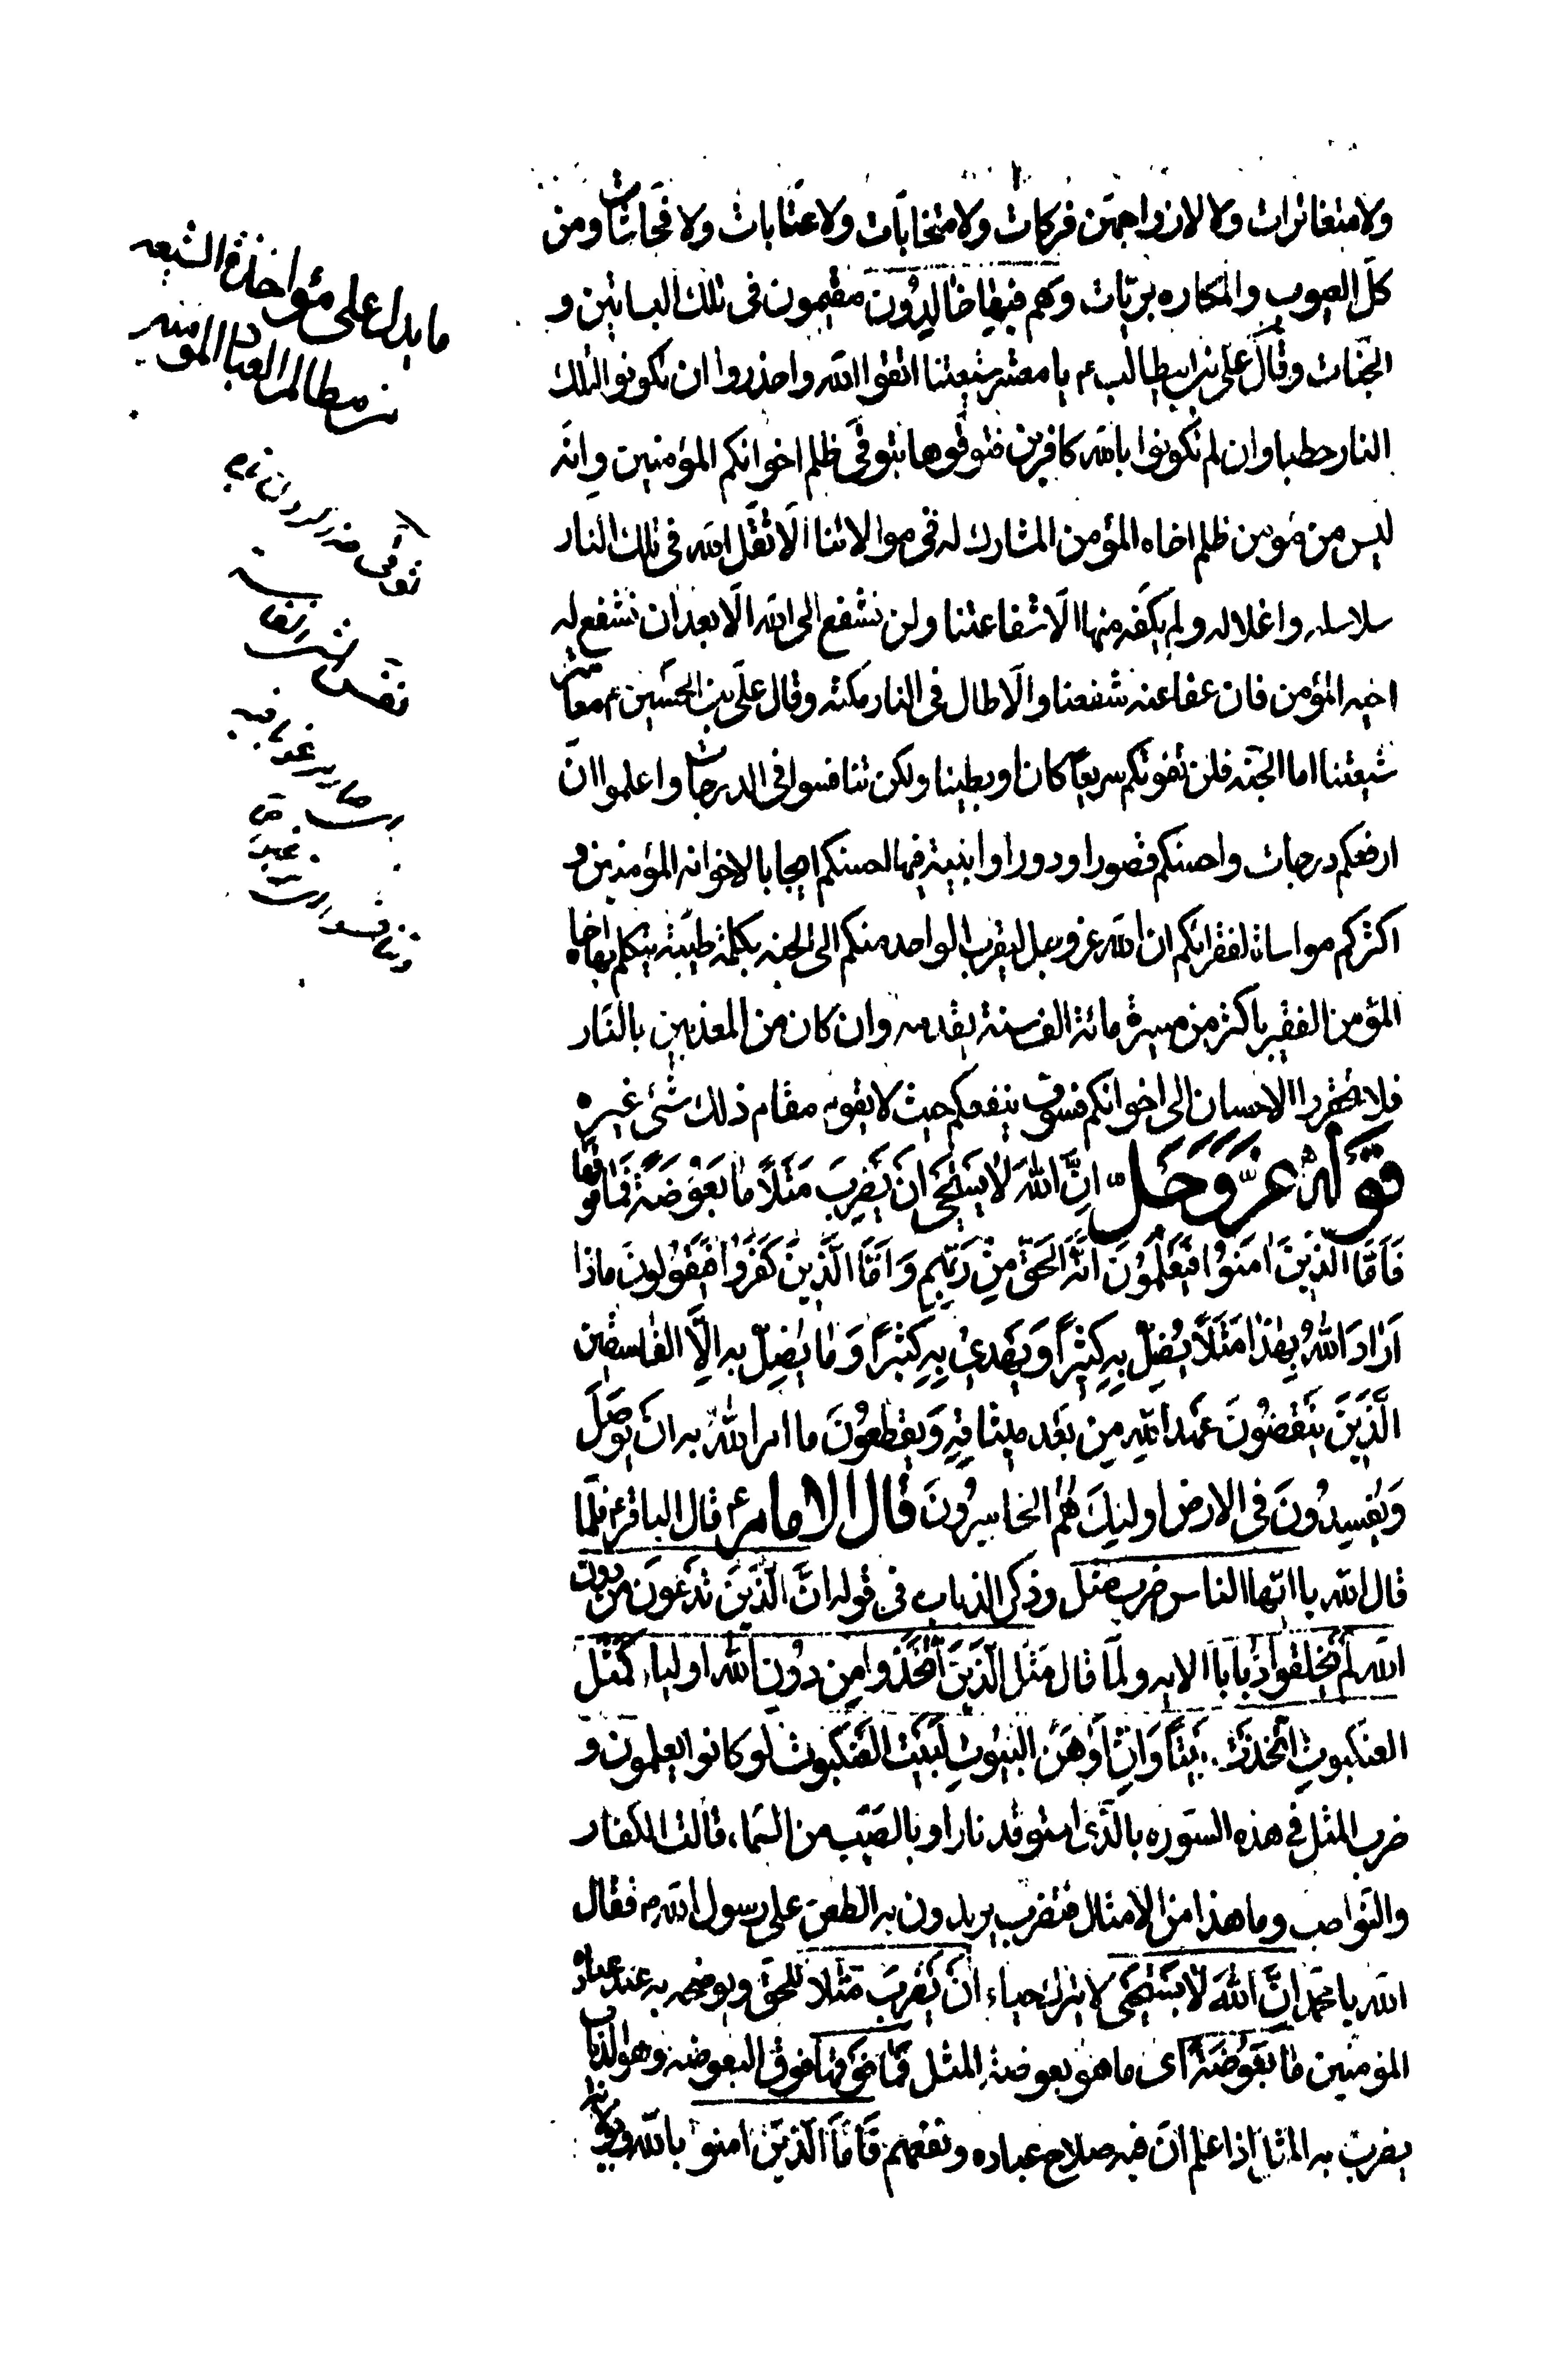 ولا متغائرات ولا لازواجهن فركات ولا متخابّات ولا عتّابات ولا فحّاشات ومن
كلّ العيوب والمكاره بريّات وهم فيها خالدون مقيمون فى تلك البساتين و
الجنّات وقال على بن ابيطالب ع يا معشر شيعتنا اتقوا الله واحذروا ان تكونوا لتلك
النار حطبا وان لم تكونوا بالله كافرين فتوقوها بتوقى ظلم اخوانكم المؤمنين وانّه
ليس من مؤمن ظلم اخاه المؤمن المشارك له فى موالاتنا الّا ثقّل الله فى تلك النار
سلاسله واغلاله ولم يكفه منها الّا شفاعتنا ولن نشفع الى الله الّا بعد ان نشفع له
اخيه المؤمن فان عفا عنه شفعنا والّا طال فى النار مكثه وقال علىّ بن الحسين ع معاشر
شيعتنا اما الجنّه فلن تفوتكم سريعاً كان او بطيئا ولكن تنافسوا فى الدرجات واعلموا انّ
ارفعكم درجات واحسنكم قصورا ودورا وابنية فيها احسنكم ايجابا لاخوانه المؤمنين و
اكثركم مواساة لفقرائكم ان الله عز وجل ليقرب الواحد منكم الى الجنه بكلمة طيّبة يتكلم بها اخاه
المؤمن الفقير باكثر من مسيرة مائة الف سنة بقدمه وان كان من المعذبين بالنّار
فلا تحقروا الاحسان الى اخوانكم فسوف ينفعكم حيث لا يقوم مقام ذلك شئ غيره
قوله عزّ وجلّ انّ الله لا يستحيى ان يضرب مثلاً ما بعوضة فما فوقها
فامّا الّذين امنوا فيعلمون انّه الحقّ من ربّهم وامّا الّذين كفروا فيقولون ماذا
اراد الله بهذا مثلاً يضلّ به كثيراً ويهدى به كثيراً وما يضلّ به الّا الفاسقين
الّذين ينقضون عهد الله من بعد ميثاقه ويقطعون ما امر الله به ان يوصل
ويفسدون فى الارض اولئك هم الخاسرون قال الامام ع قال الباقر ع فلمّا
قال الله يا ايّها الناس ضرب مثل وذكر الذباب فى قوله انّ الّذين تدعون من دون
الله لم يخلقوا ذباباً الايه ولمّا قال مثل الّذين اتّخذوا من دون الله اولياء كمثل
العنكبوت اتّخذت بيتاً وانّ اوهن البيوت لبيت العنكبوت لو كانوا يعلمون و
ضرب المثل فى هذه السّوره بالّذى استوقد نارا وبالصيّب من السّماء قالت الكفار
والنّواصب وما هذا من الامثال فتضرب يريدون به الطعن على رسول الله ص فقال
الله يا محمّد انّ الله لا يستحيى لا يترك حياء ان يضرب مثلاً للحقّ ويوضحه به عند عباده
المؤمنين ما بعوضةً اى ما هو بعوضة المثل فما فوقها فوق البعوضه وهو الذباب
يضرب به المثل اذا علم انّ فيه صلاح عباده ونفعهم فامّا الّذين امنوا بالله وبولاية
ما يدل على مؤاخذة الشيعه
من مظالم العباد المؤمنين